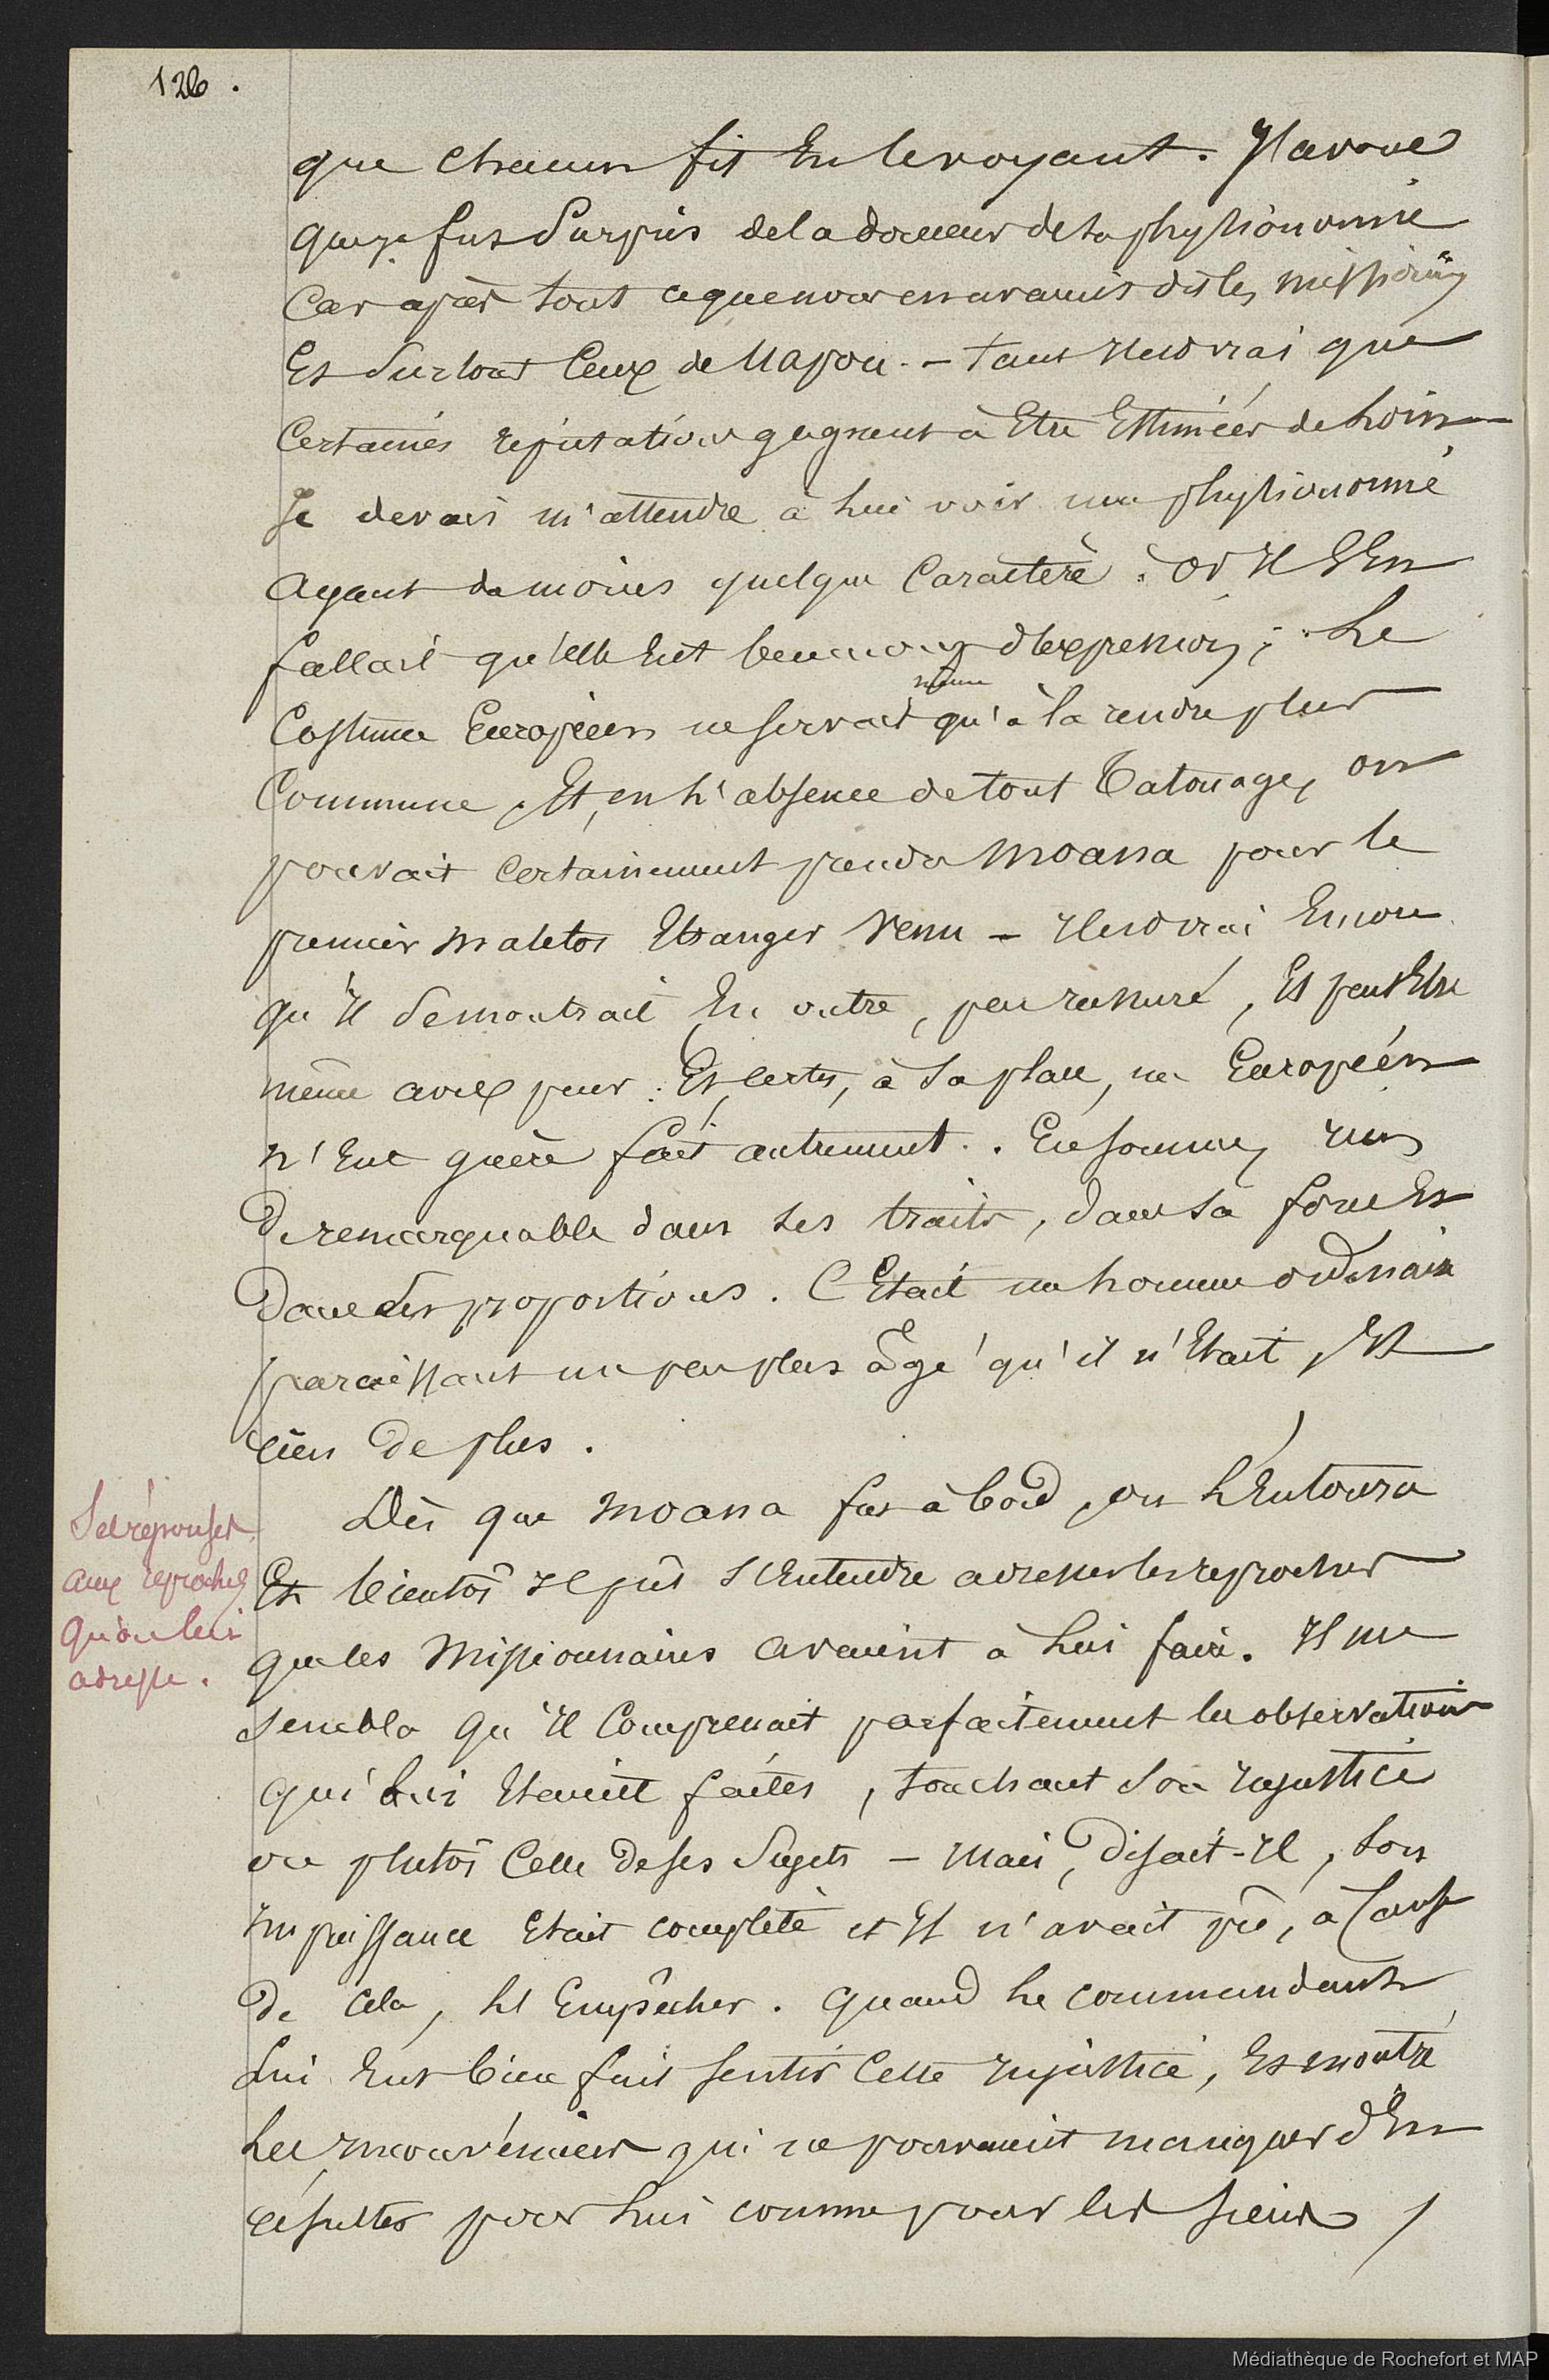 126.
que chacun fit En le voyant. J'avoue
que je fus Surpris de la douceur de sa physionomie
Car après tout ce que nous en avaient dit les missionres
Et Surtout Ceux de Uapou. - tant Il est vrai que
Certaines réputations gagnent à Etre Estimées de Loin
Je devais m'attendre à Lui voir une physionomie
ayant du moins quelque Caractère : or Il S'En
fallait qu'elle Eut beaucoup d'Expression ; Le
même
Costume Européen ne servait qu'à la rendre plus
Commune, Et, en L'absence de tout Tatouage, on
pouvait certainement prendre Moana pour le
premier matelot Etranger Venu - Il est vrai Encore
qu'Il Se montrait En outre, peu rassuré, Et peut Etre
même avec peur : Et certes, à Sa place, un Européen
n'Eut guère fait autrement. En somme, rien
De remarquable dans ses traits, dans sa force Et
Dans Ses proportions. C'Etait un homme ordinaire
paraissant un peu plus âgé qu'il n'Etait, Et
rien De plus.
Dès que Moana fut à bord, on L'Entoura
Ses réponses
aux reproches
qu'on lui
adresse.
Et bientôt Il pût S'Entendre adresser les reproches
que les Missionnaires avaient à Lui faire. Il me
Sembla qu'Il Comprenait parfaitement les observations
qui Lui Etaient faites, touchant Son Injustice
ou plutôt Celle De ses Sujets - Mais, Disait-Il, Son
Impuissance Etait complète et Il n'avait pû, à Cause
De cela, Les Empêcher. Quand Le commandant
Lui Eut bien fait sentir Cette Injustice, Et montré
Les Inconvénients qui ne pouvaient manquer d'En
résulter pour Lui comme pour les siens,
Médiathèque de Rochefort et MAP